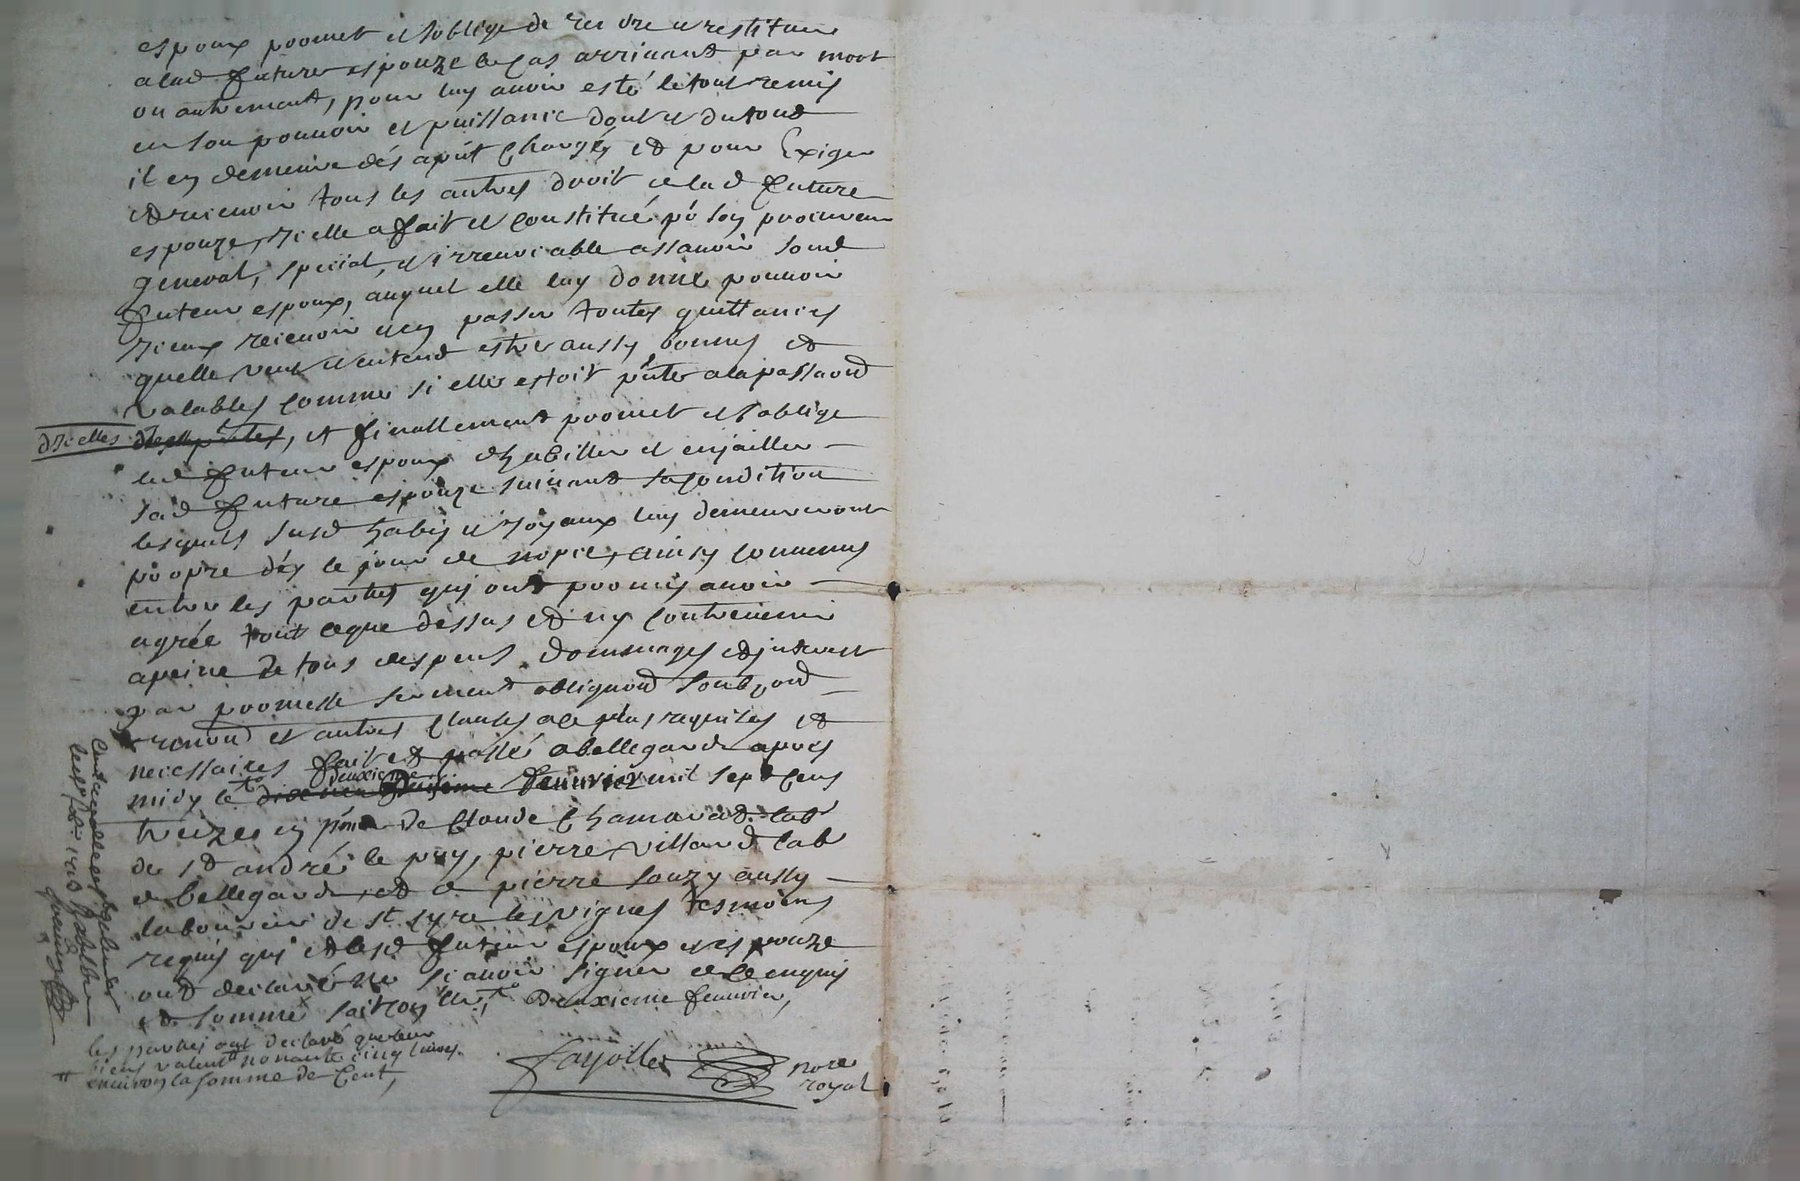 espoux promet et soblige de rendre et restituer
a lad future espouze le cas arrivant par mort
ou autrement, pour luy avoir esté le tout remis
en son pouvoir et puissance dont et du tout
il en demeure dés apnt chargé, et pour Exiger
et recevoir tous les autres droit de lad future
espouze, icelle a fait et constitué pr son procureur
general, special, et irrevocable assavoir sond
futeur espoux, auquel elle luy donne pouvoir
iceux recevoir et en passer toutes quittances
quelle veut et entend estre aussy bonnes et
valables comme si elle estoit pnte a la passaon
d'icelles, et finallement promet et soblige
led futeur espoux d'habiller et enjailler
sad future espouze suivant sa condition
lesquels susd habis et joyaux luy demeureront
propre dés le jour de nopce, ainsy convenus
entre les parties qui ont promis avoir
agrée tout ce que dessus et ny contrevenir
a peine de tous despens dommages et interest
par promesse serment obligaon soubzon
renond et autres clauses a ce plus requises et
necessaires fait et passé a bellegarde apres
midy le deuxieme feuvrier mil sept cens
treize en pnce de Claude Chamarad lab
de st andré le puy, pierre villard lab
de bellegarde, et de pierre souzy aussy
laboureur de st cyre les vignes tesmoins
requis qui et lesd futeur espoux et espouze
ont declaré ne scavoir signer de ce enquis
et sommé saitron deuxieme feuvrier,
les parties ont declaré que leur
biens valent nonante cinq livres
environ la somme de Cent,
fayolle nore
royal